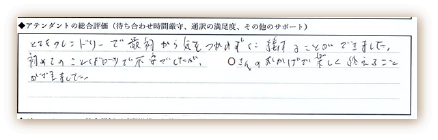 ◆アテンダントの総合評価（待ち合わせ時間厳守、通訳の満足度、その他のサポート）
とてもフレンドリーで最初から気をつかわずに話すことができました。
初めてのことばかりで不安でしたが、○さんのおかげで楽しく終えること
ができました。